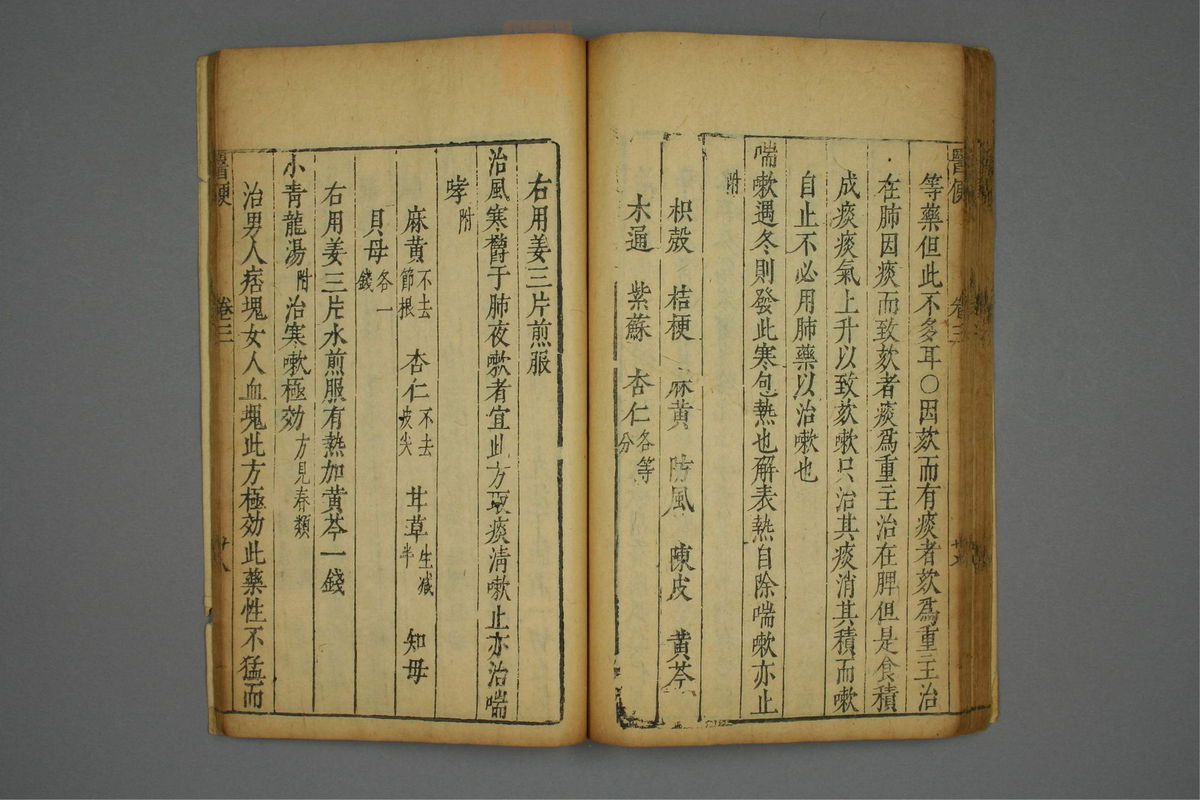 醫便
卷三
等藥但此不多耳○因欬而有痰者欬爲重主治
在肺因痰而致欬者痰爲重主治在脾但是食積
成痰痰氣上升以致欬嗽只治其痰消其積而嗽
自止不必用肺藥以治嗽也
喘嗽遇冬則發此寒包熱也解表熱自除喘嗽亦止
附
枳殼 桔梗 麻黃 防風 陳皮 黃芩
木通 紫蘇 杏仁各等分
右用姜三片煎服
治風寒欝于肺夜嗽者宜此方豁痰淸嗽止亦治喘
哮附
麻黃不去節根 杏仁不去皮尖 甘草生减半 知母
貝母各一錢
右用姜三片水煎服有熱加黃芩一錢
小靑龍湯附治寒嗽極効方見春類
治男人痞塊女人血塊此方極効此藥性不猛而
醫便
卷三
廿八